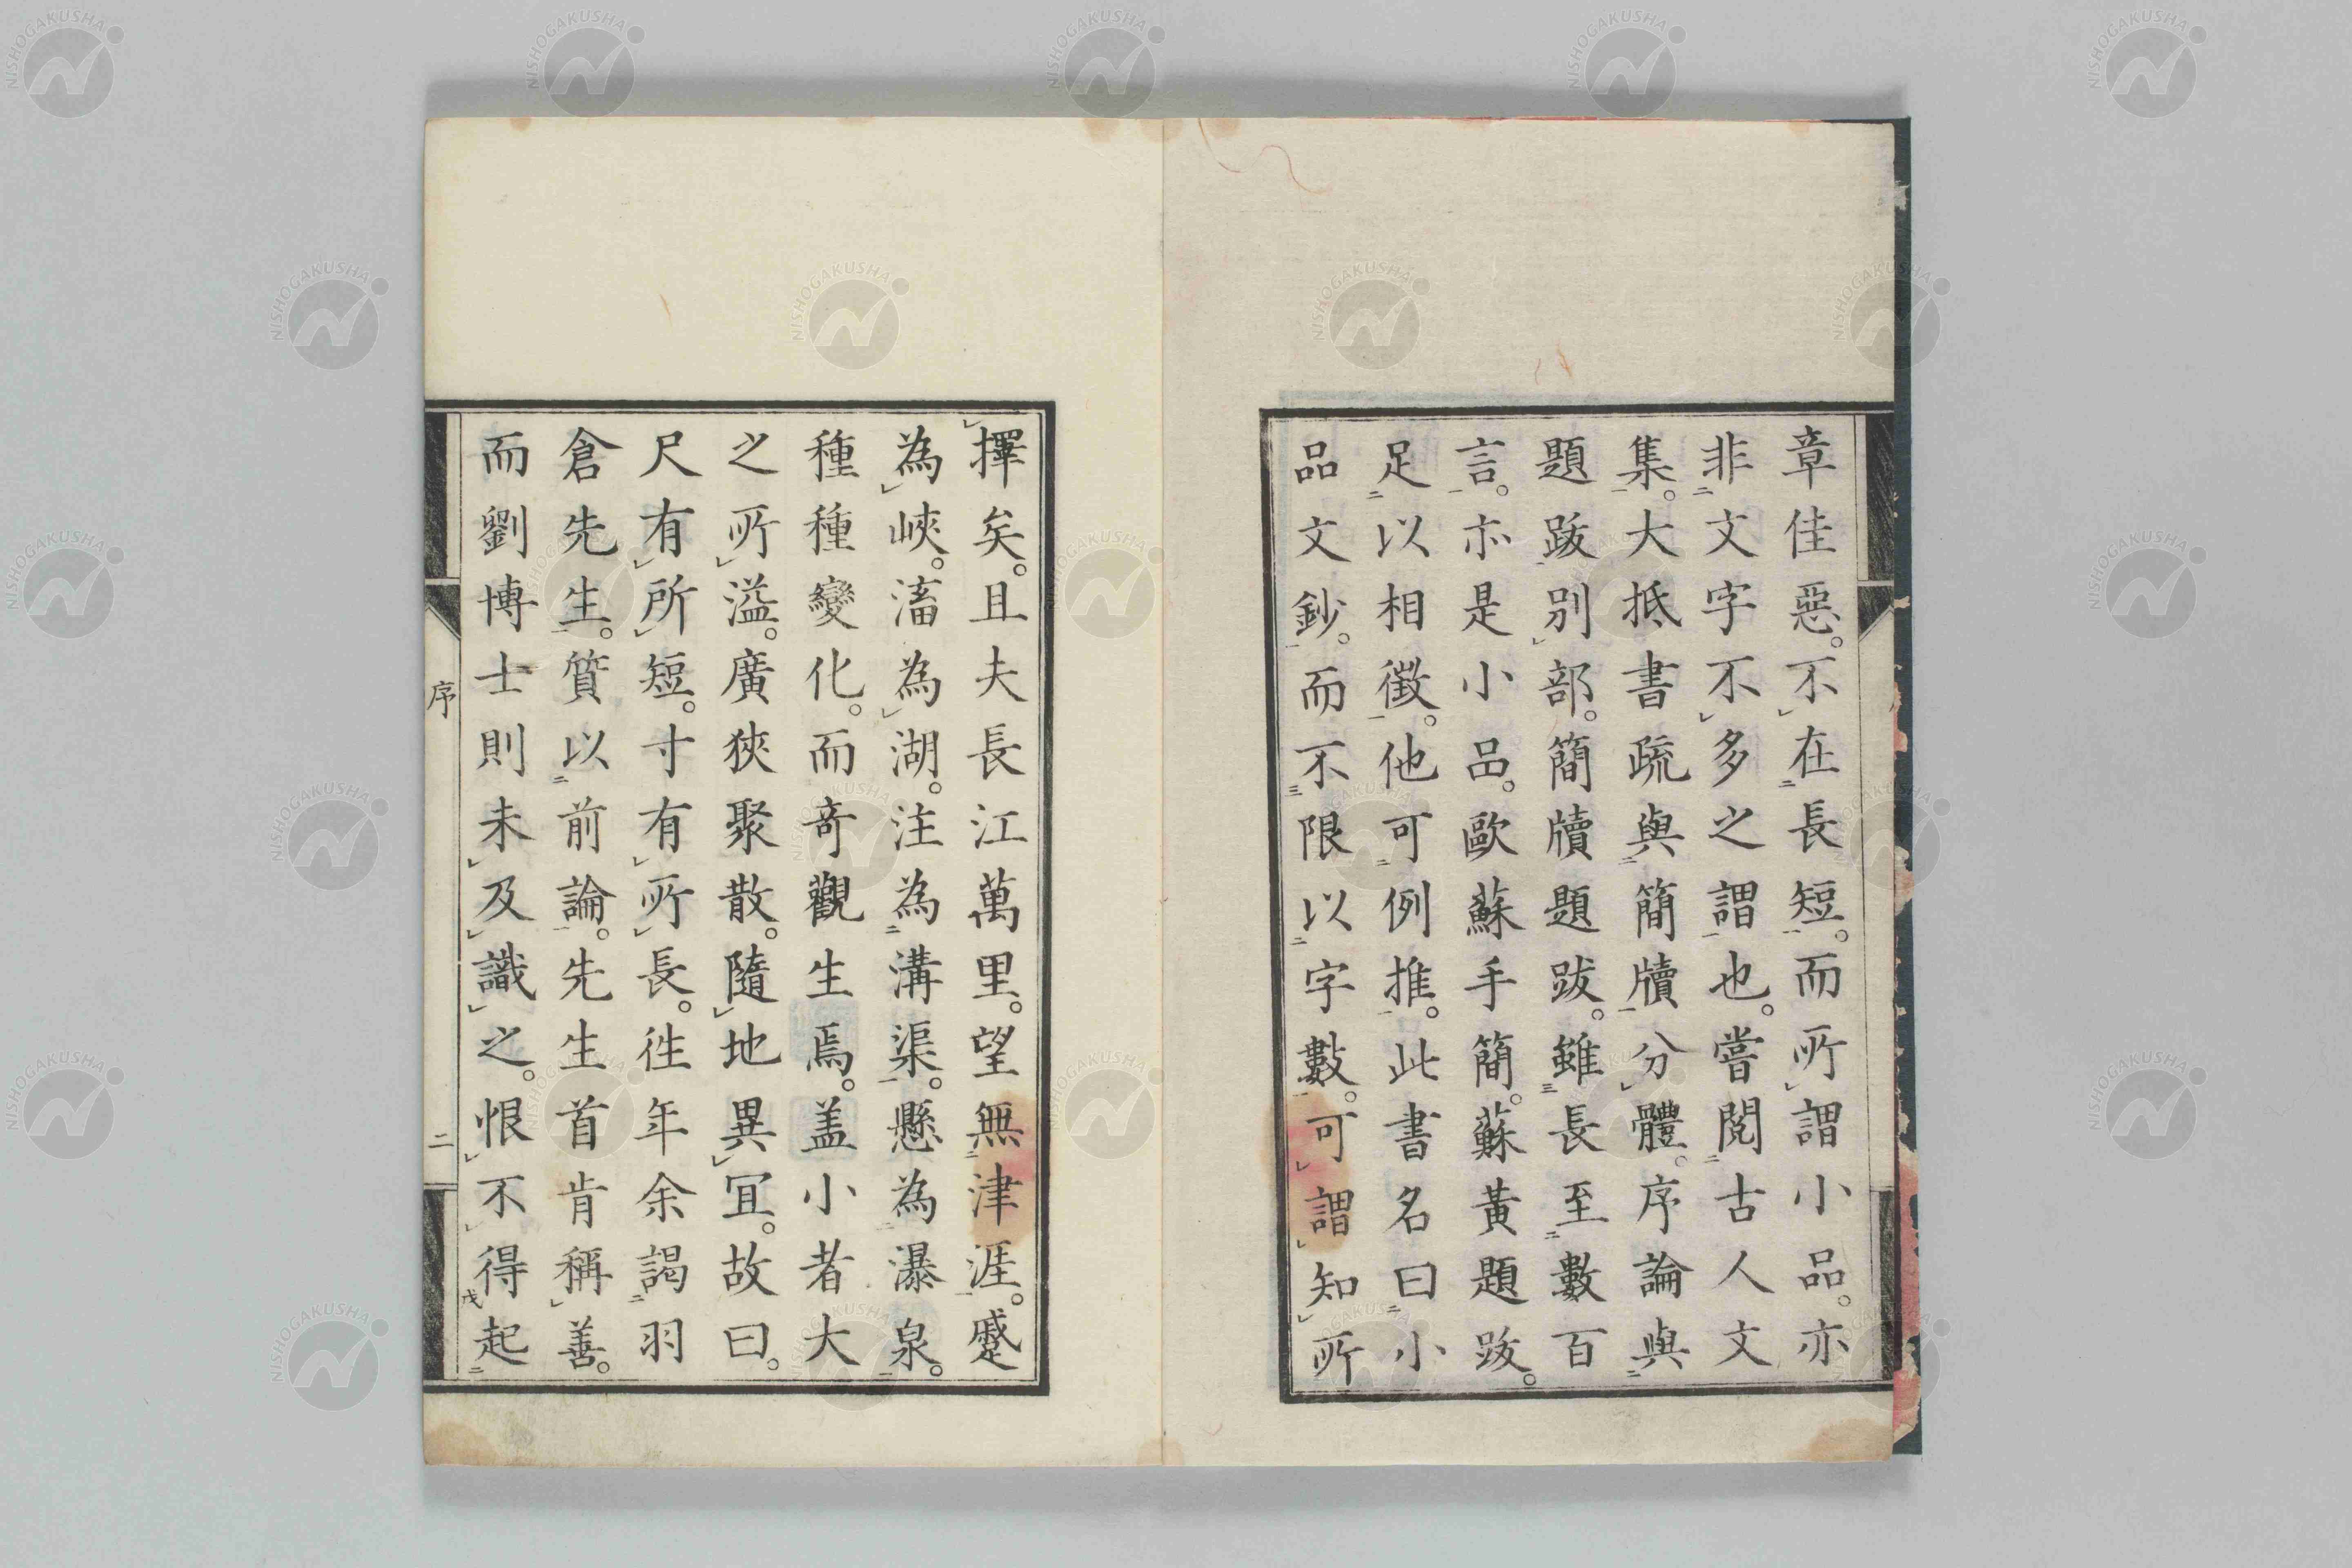 章佳惡。不在長短。而所謂小品。亦
非文字不多之謂也。嘗閲古人文
集。大抵書疏與簡牘分體。序論與
題跋別部。簡牘題跋。雖長至數百
言。亦是小品。歐蘇手簡。蘇黃題跋。
足以相徵。他可例推。此書名曰小
品文鈔。而不限以字數。可謂知所
擇矣。且夫長江萬里。望無津涯。蹙
為峽。滀為湖。注為溝渠。懸為瀑泉。
種種變化。而奇觀生焉。盖小者大
之所溢。廣狹聚散。隨地異冝。故曰。
尺有所短。寸有所長。徃年余謁羽
倉先生。質以前論。先生首肯稱善。
而劉博士則未及識之。恨不得起
序
二
NISHOGAKUSHA